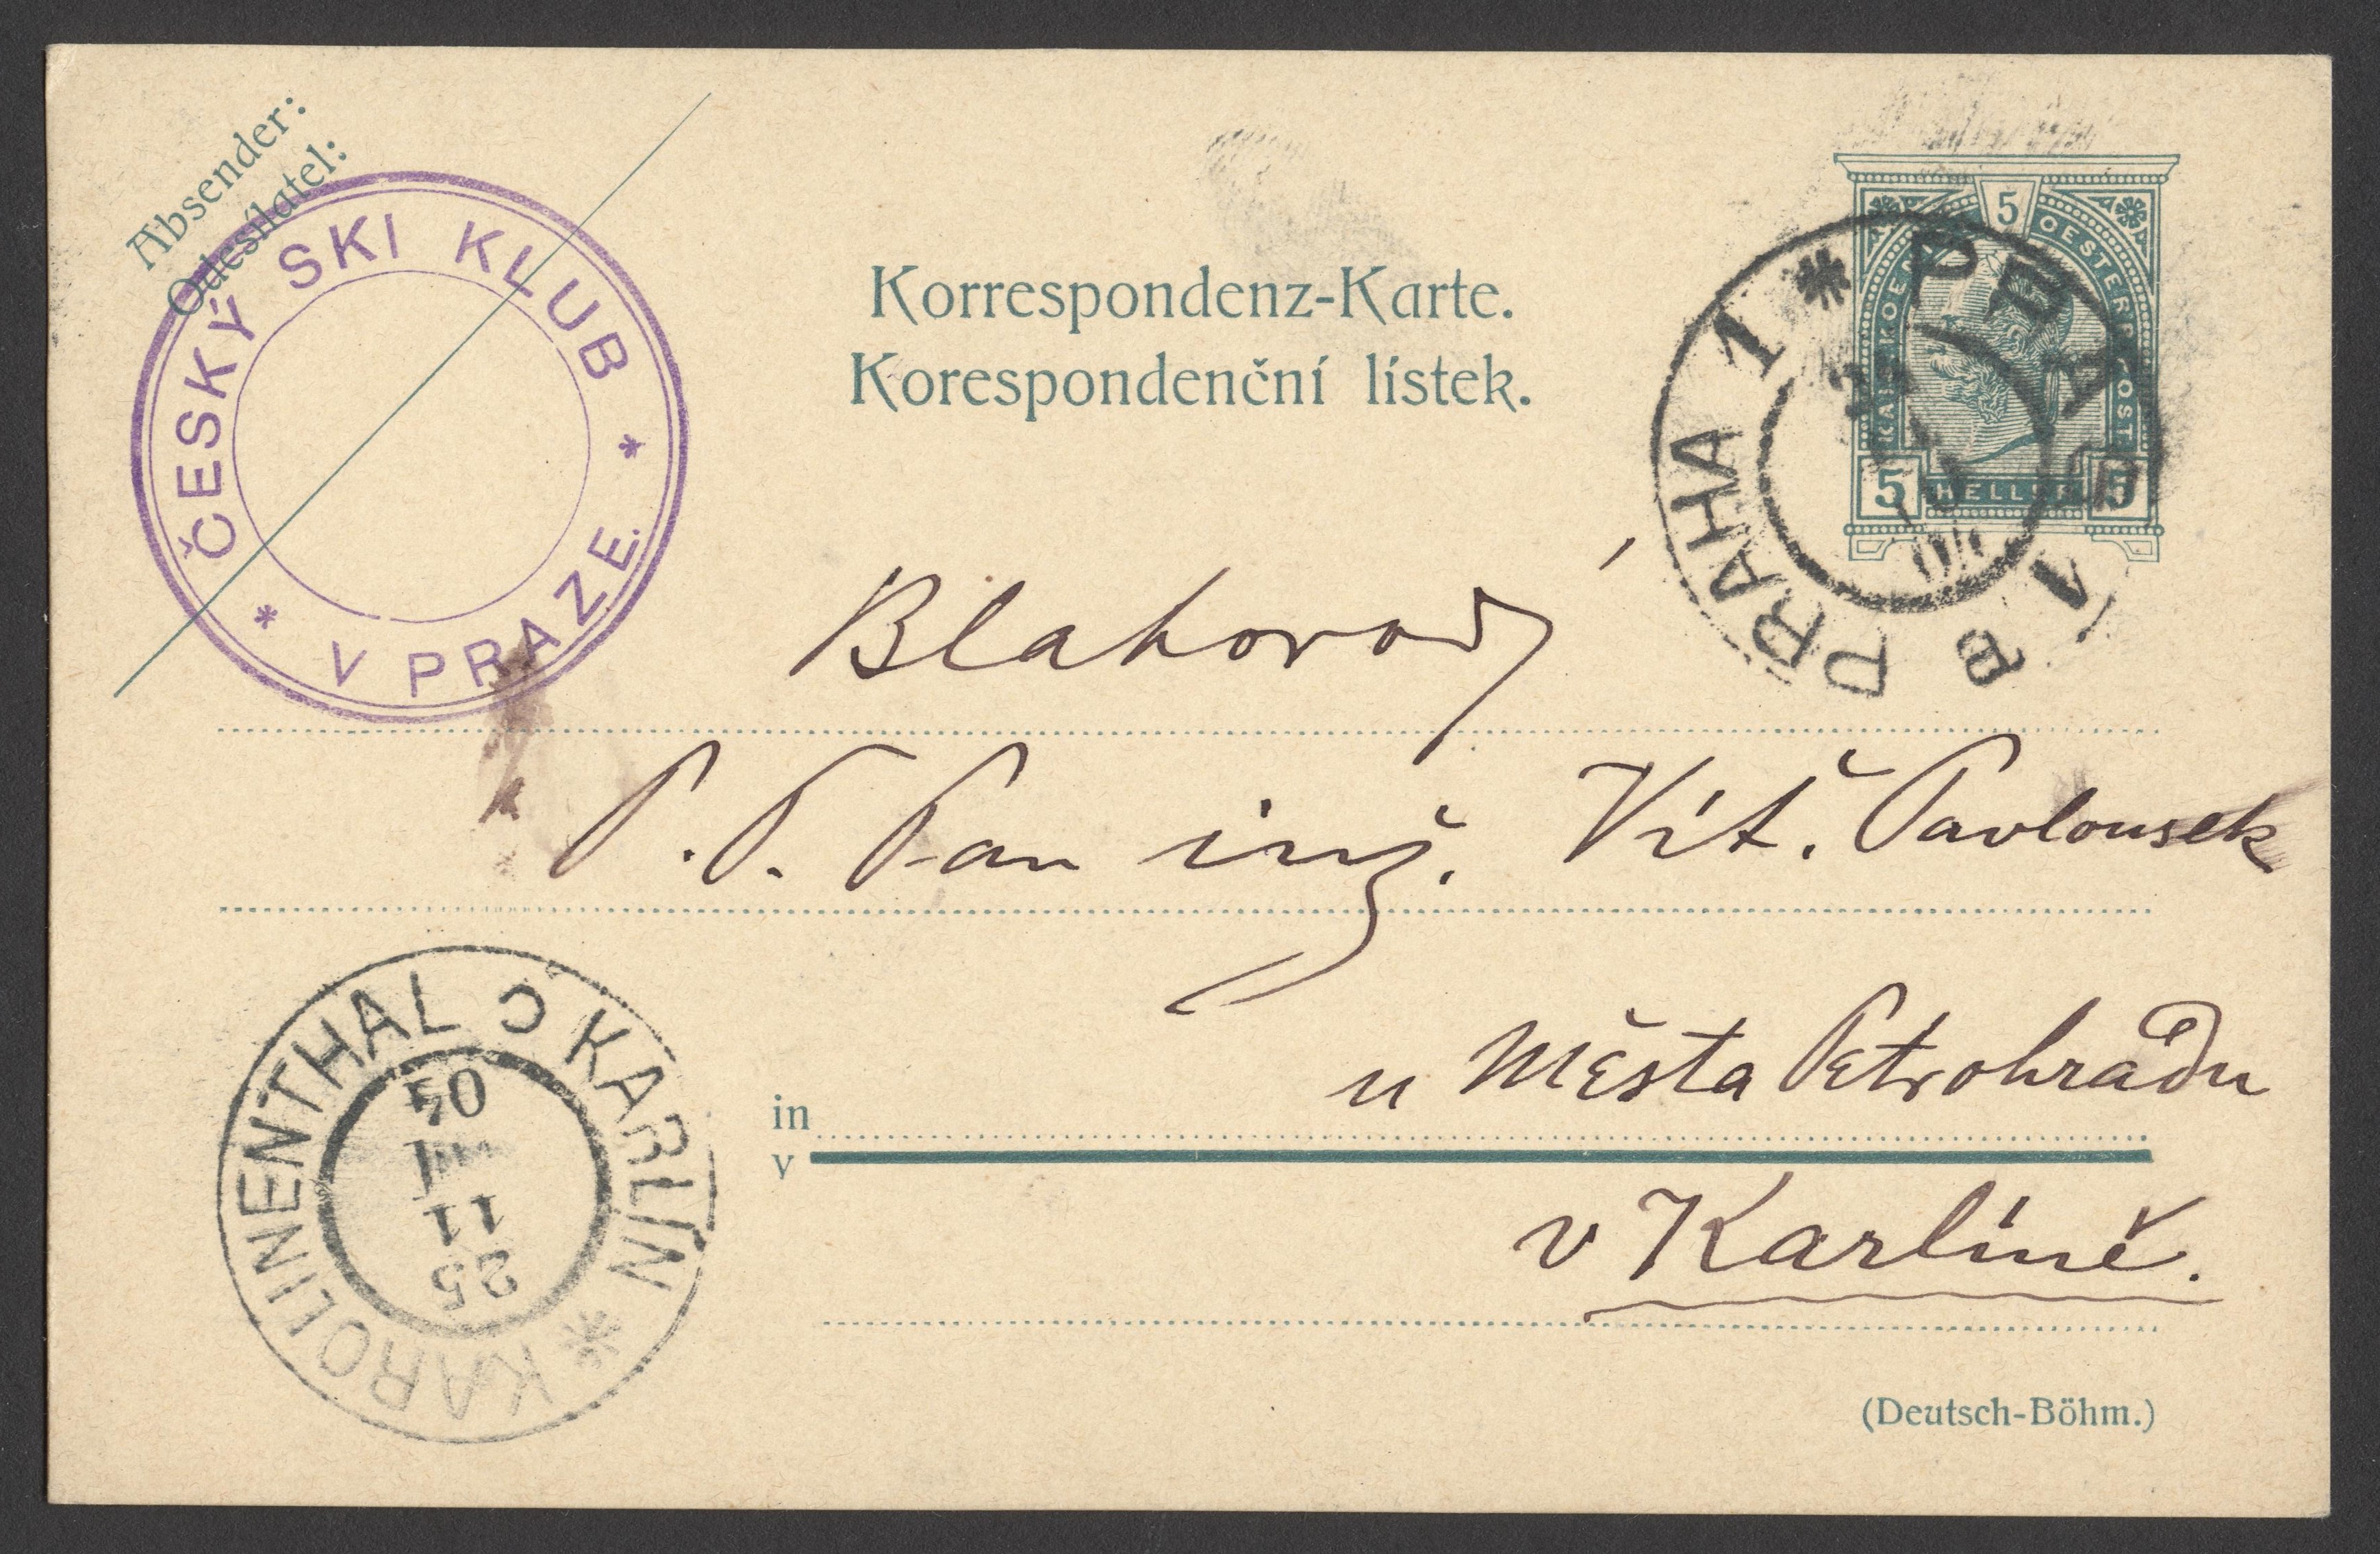 Absender:
Odesílatel:
ČESKÝ SKI KLUB
* V PRAZE. *
Korrespondenz-Karte.
Korespondenční lístek.
5
KAIS. KOEN. OESTERR. POST
5 HELLER 5
PRAHA 1 * PRAG
Blahorodý
P. T. Pan inž. Vít. Pavlousek
u Města Petrohradu
in
v
v Karlíně.
KAROLINENTHAL C KARLÍN *
25
11
04
(Deutsch-Böhm.)